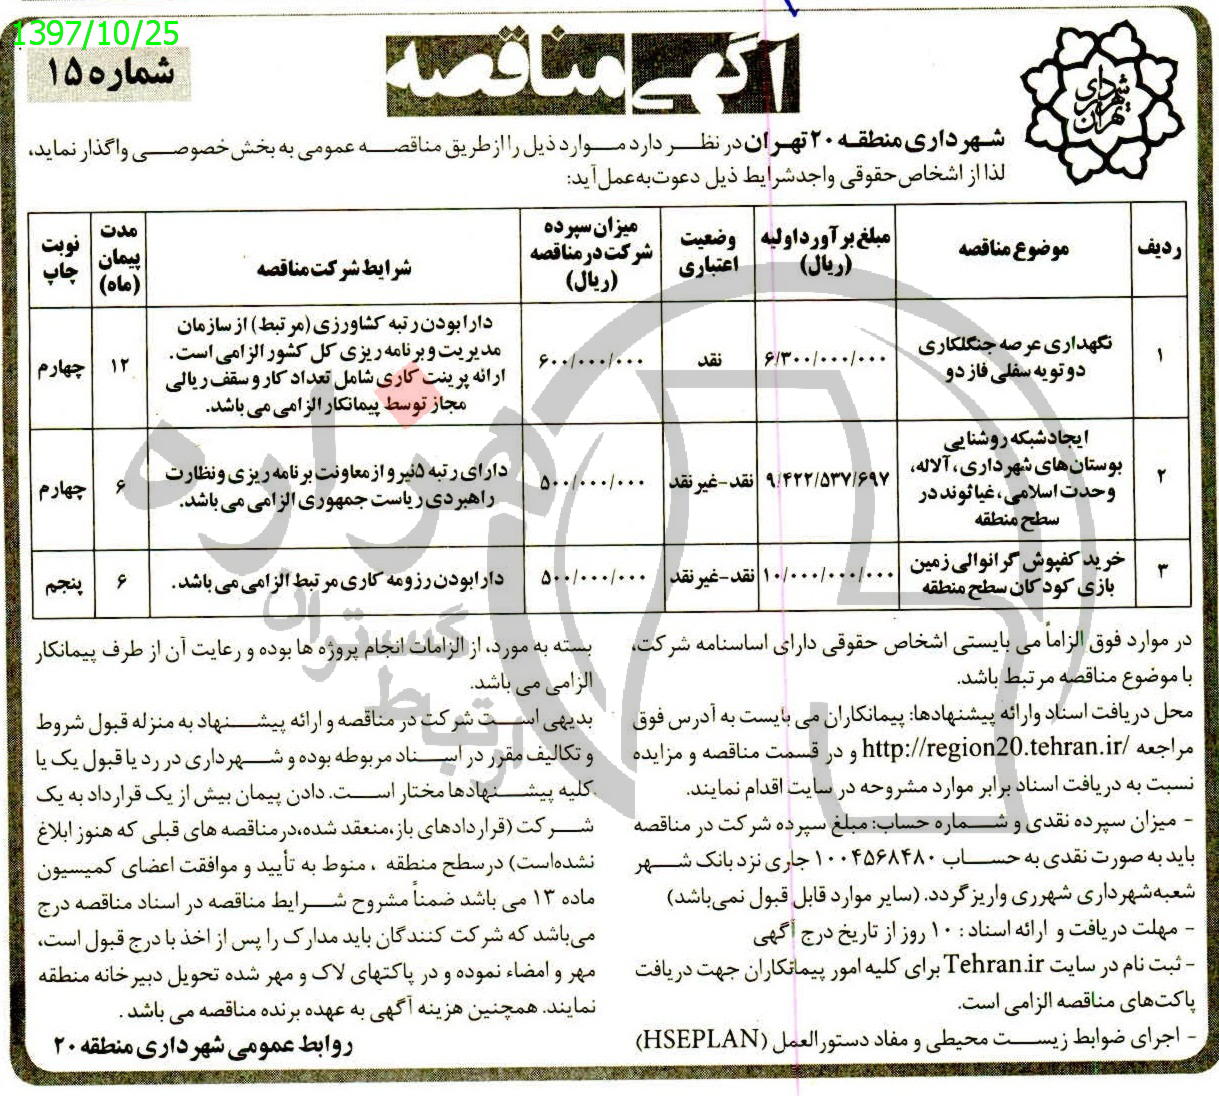 1397/10/25
شماره ۱۵
آگهی مناقصه
شهرداری تهران
شهرداری منطقه ۲۰ تهران در نظر دارد موارد ذیل را از طریق مناقصه عمومی به بخش خصوصی واگذار نماید،
لذا از اشخاص حقوقی واجد شرایط ذیل دعوت به عمل آید:
ردیف | موضوع مناقصه | مبلغ برآورد اولیه (ریال) | وضعیت اعتباری | میزان سپرده شرکت در مناقصه (ریال) | شرایط شرکت مناقصه | مدت پیمان (ماه) | نوبت چاپ
۱ | نگهداری عرصه جنگلکاری دوتویه سفلی فاز دو | ۶/۳۰۰/۰۰۰/۰۰۰ | نقد | ۶۰۰/۰۰۰/۰۰۰ | دارا بودن رتبه کشاورزی (مرتبط) از سازمان مدیریت و برنامه ریزی کل کشور الزامی است. ارائه پرینت کاری شامل تعداد کار و سقف ریالی مجاز توسط پیمانکار الزامی می باشد. | ۱۲ | چهارم
۲ | ایجاد شبکه روشنایی بوستان‌های شهرداری، آلاله، وحدت اسلامی، غیاثوند در سطح منطقه | ۹/۴۲۲/۵۳۷/۶۹۷ | نقد-غیر نقد | ۵۰۰/۰۰۰/۰۰۰ | دارای رتبه ۵ نیرو از معاونت برنامه ریزی و نظارت راهبردی ریاست جمهوری الزامی می باشد. | ۶ | چهارم
۳ | خرید کفپوش گرانوالی زمین بازی کودکان سطح منطقه | ۱۰/۰۰۰/۰۰۰/۰۰۰ | نقد-غیر نقد | ۵۰۰/۰۰۰/۰۰۰ | دارا بودن رزومه کاری مرتبط الزامی می باشد. | ۶ | پنجم
در موارد فوق الزاماً می بایستی اشخاص حقوقی دارای اساسنامه شرکت،
با موضوع مناقصه مرتبط باشد.
محل دریافت اسناد وارائه پیشنهادها: پیمانکاران می بایست به آدرس فوق
مراجعه http://region20.tehran.ir/ و در قسمت مناقصه و مزایده
نسبت به دریافت اسناد برابر موارد مشروحه در سایت اقدام نمایند.
- میزان سپرده نقدی و شماره حساب: مبلغ سپرده شرکت در مناقصه
باید به صورت نقدی به حساب ۱۰۰۴۵۶۸۴۸۰ جاری نزد بانک شهر
شعبه شهرداری شهرری واریز گردد. (سایر موارد قابل قبول نمی‌باشد)
- مهلت دریافت و ارائه اسناد: ۱۰ روز از تاریخ درج آگهی
- ثبت نام در سایت Tehran.ir برای کلیه امور پیمانکاران جهت دریافت
پاکت‌های مناقصه الزامی است.
- اجرای ضوابط زیست محیطی و مفاد دستورالعمل (HSEPLAN)
بسته به مورد، از الزامات انجام پروژه ها بوده و رعایت آن از طرف پیمانکار
الزامی می باشد.
بدیهی است شرکت در مناقصه و ارائه پیشنهاد به منزله قبول شروط
و تکالیف مقرر در اسناد مربوطه بوده و شهرداری در رد یا قبول یک یا
کلیه پیشنهادها مختار است. دادن پیمان بیش از یک قرارداد به یک
شرکت (قراردادهای باز، منعقد شده، درمناقصه های قبلی که هنوز ابلاغ
نشده است) درسطح منطقه ، منوط به تأیید و موافقت اعضای کمیسیون
ماده ۱۳ می باشد ضمناً مشروح شرایط مناقصه در اسناد مناقصه درج
می‌باشد که شرکت کنندگان باید مدارک را پس از اخذ با درج قبول است،
مهر و امضاء نموده و در پاکتهای لاک و مهر شده تحویل دبیرخانه منطقه
نمایند. همچنین هزینه آگهی به عهده برنده مناقصه می باشد.
روابط عمومی شهرداری منطقه ۲۰
هزاره
گستران
ارتباط